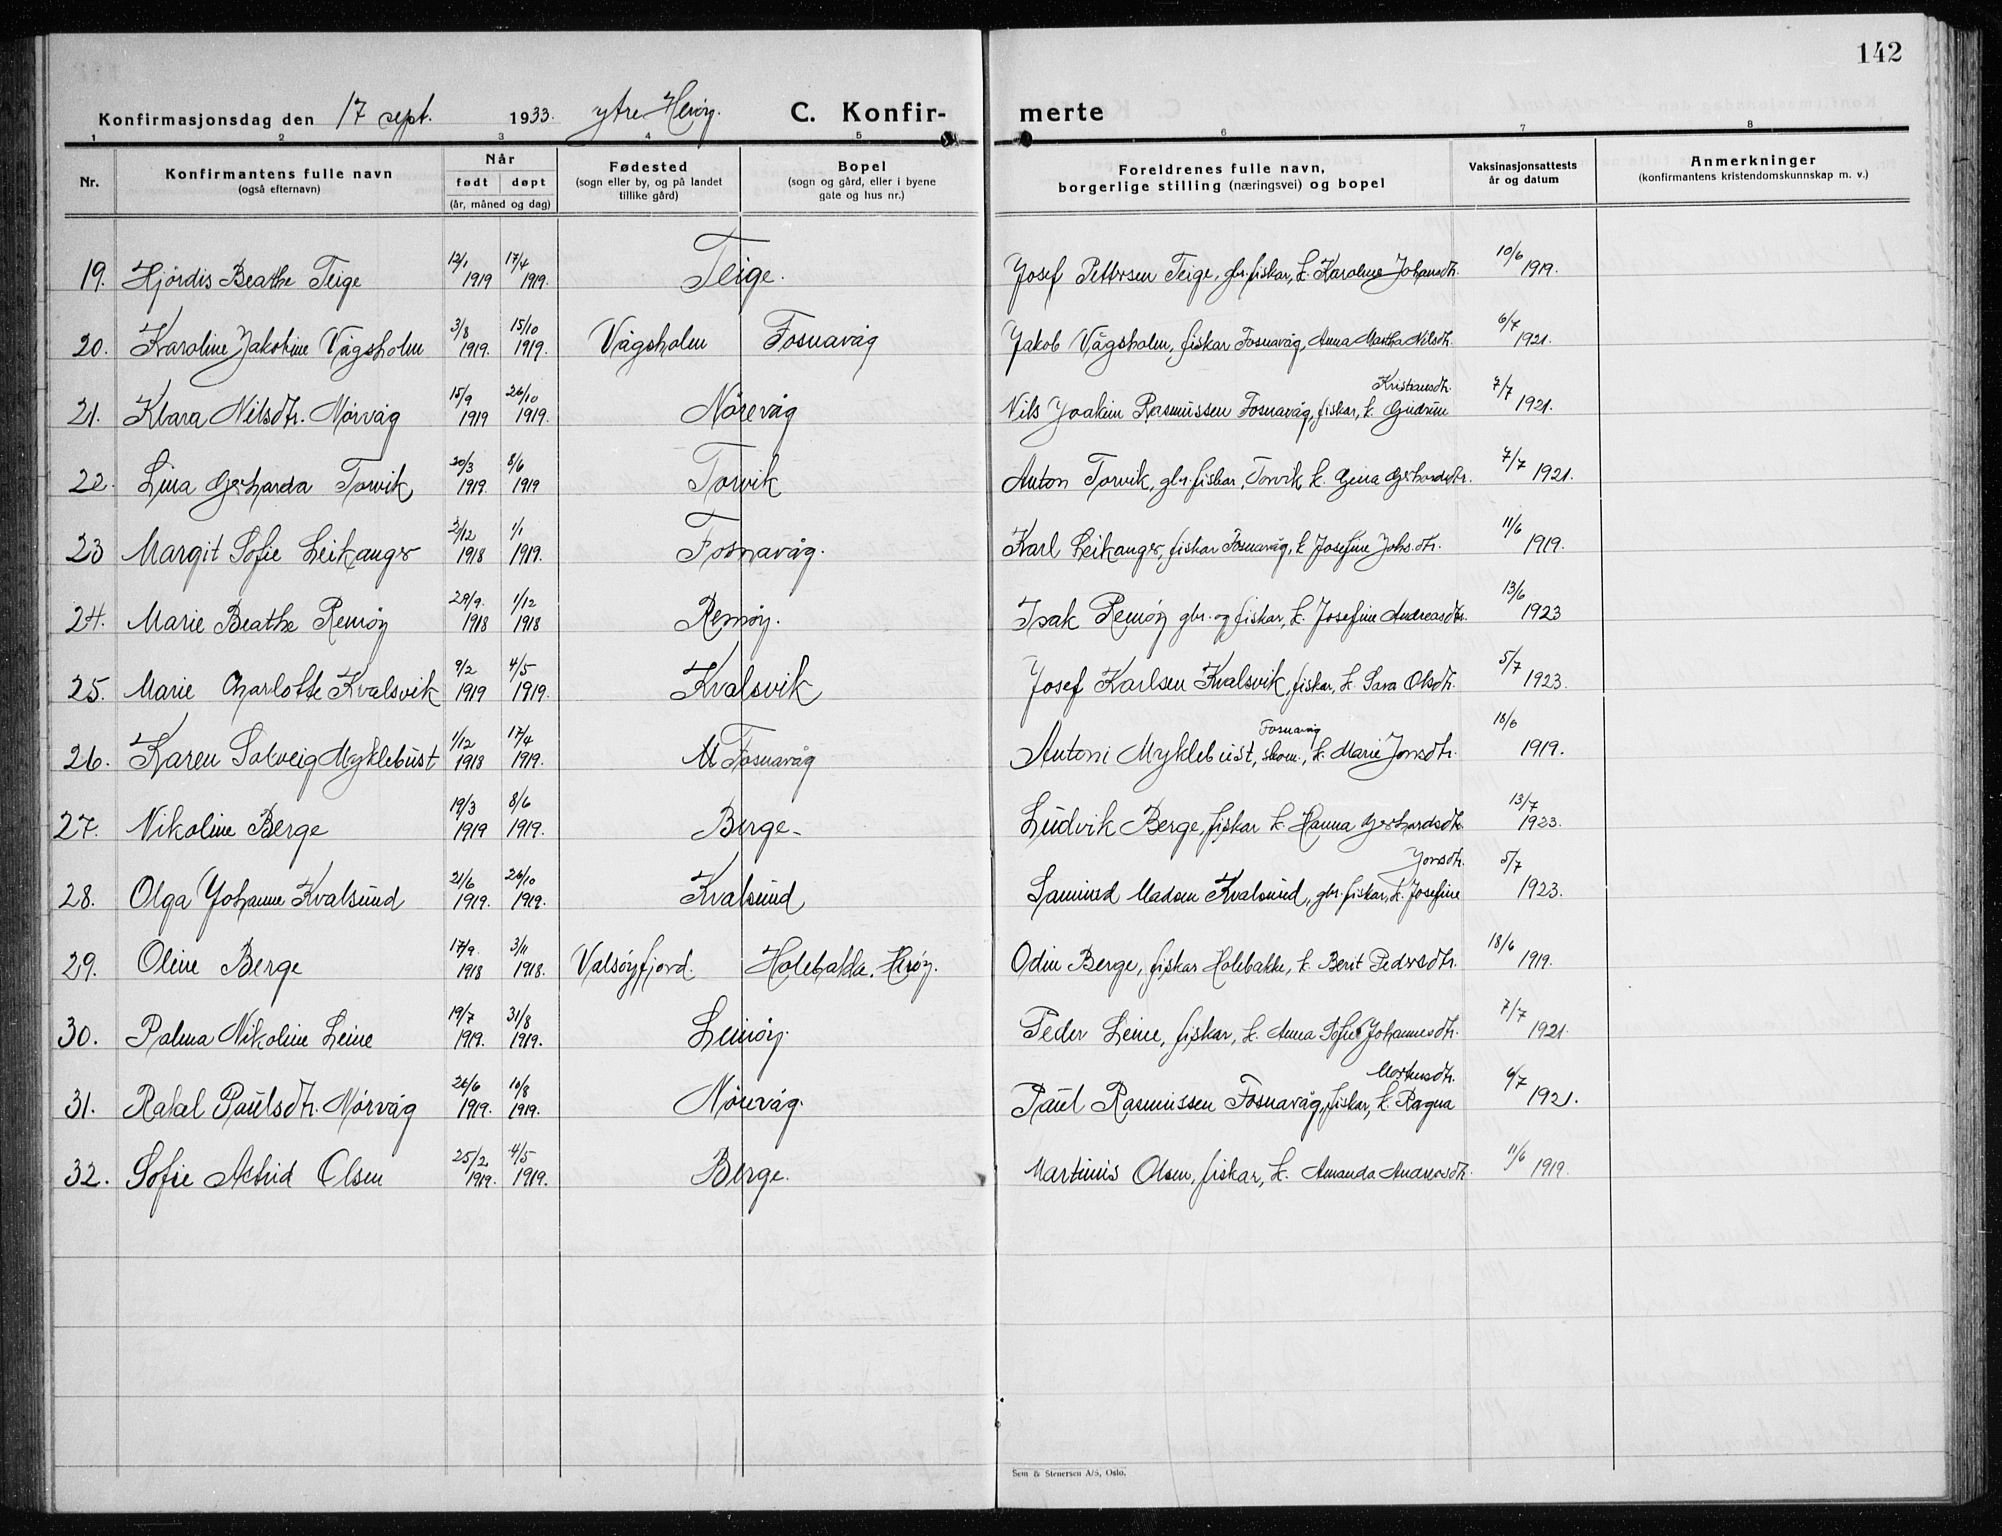 142
Konfirmasjonsdag den 17 sept. 1933. ytre Herøy. C. Konfir- merte
1 2 3 4 5 6 7 8
Nr. Konfirmantens fulle navn (også efternavn) Når født døpt (år, måned og dag) Fødested (sogn eller by, og på landet tillike gård) Bopel (sogn og gård, eller i byene gate og hus nr.) Foreldrenes fulle navn, borgerlige stilling (næringsvei) og bopel Vaksinasjonsattests år og datum Anmerkninger (konfirmantens kristendomskunnskap m. v.)
19. Hjørdis Beathe Teige 12/1 1919 17/4 1919. Teige. Josef Pettersen Teige, gbr. fiskar, k. Karoline Johansdtr. 10/6 1919.
20. Karoline Jakobine Vågsholm 3/8 1919. 15/10 1919. Vågsholm Fosnavåg Jakob Vågsholm, fiskar Fosnavåg, Anna Martha Nilsdtr. 6/7 1921.
21. Klara Nilsdtr. Nørvåg 15/9 1919 26/10 1919. Nørevåg Nils Joakim Rasmussen Fosnavåg, fiskar, k. Gudrun Kristiansdtr. 7/7 1921.
22. Lina Gerharda Torvik 20/3 1919. 8/6 1919 Torvik Anton Torvik, gbr. fiskar, Torvik k. Gina Gerhardsdtr. 7/7 1921.
23 Margit Sofie Leikanger 2/12 1918 1/1 1919. Fosnavåg. Karl Leikanger, fiskar Fosnavåg, k. Josefine Johs.dtr. 11/6 1919.
24. Marie Beathe Remøy 29/9. 1918 1/12 1918 Remøy. Isak Remøy gbr. og fiskar, k. Josefine Andreasdtr. 13/6 1923
25. Marie Charlotte Kvalsvik 9/2 1919 4/5 1919. Kvalsvik Josef Karlsen Kvalsvik, fiskar, k. Sara Olsdtr. 5/7 1923.
26. Karen Solveig Myklebust 1/12 1918 17/4 1919. Fosnavåg Antoni Myklebust, skom., Fosnavåg k. Marie Jonsdtr. 18/6 1919.
27. Nikoline Berge 19/3 1919 8/6 1919. Berge. Ludvik Berge, fiskar k. Hanna Gerhardsdtr. 13/7 1923.
28. Olga Johanne Kvalsund 21/6 1919. 26/10 1919. Kvalsund Samund Madsen Kvalsund, gbr. fiskar, k. Josefine Jonsdtr. 5/7 1923.
29. Oline Berge 17/9. 1918 3/11 1918. Valsøyfjord. Holebakke. Herøy. Odin Berge, fiskar Holebakke, k. Berit Pedersdtr. 18/6 1919.
30. Palma Nikoline Leine 19/7 1919. 31/8 1919. Leinøy. Peder Leine, fiskar, k. Anna Sofie Johannesdtr. 7/7 1921.
31. Rakel Paulsdtr. Nørvåg 26/6 1919. 10/8 1919. Nørevåg. Paul Rasmussen Fosnavåg, fiskar, k. Ragna Mortensdtr. 6/7 1921.
32. Sofie Astrid Olsen 25/2 1919. 4/5 1919. Berge. Martinus Olsen, fiskar, k. Amanda Andersdtr. 11/6 1919.
Sem & Stenersen A/S, Oslo.